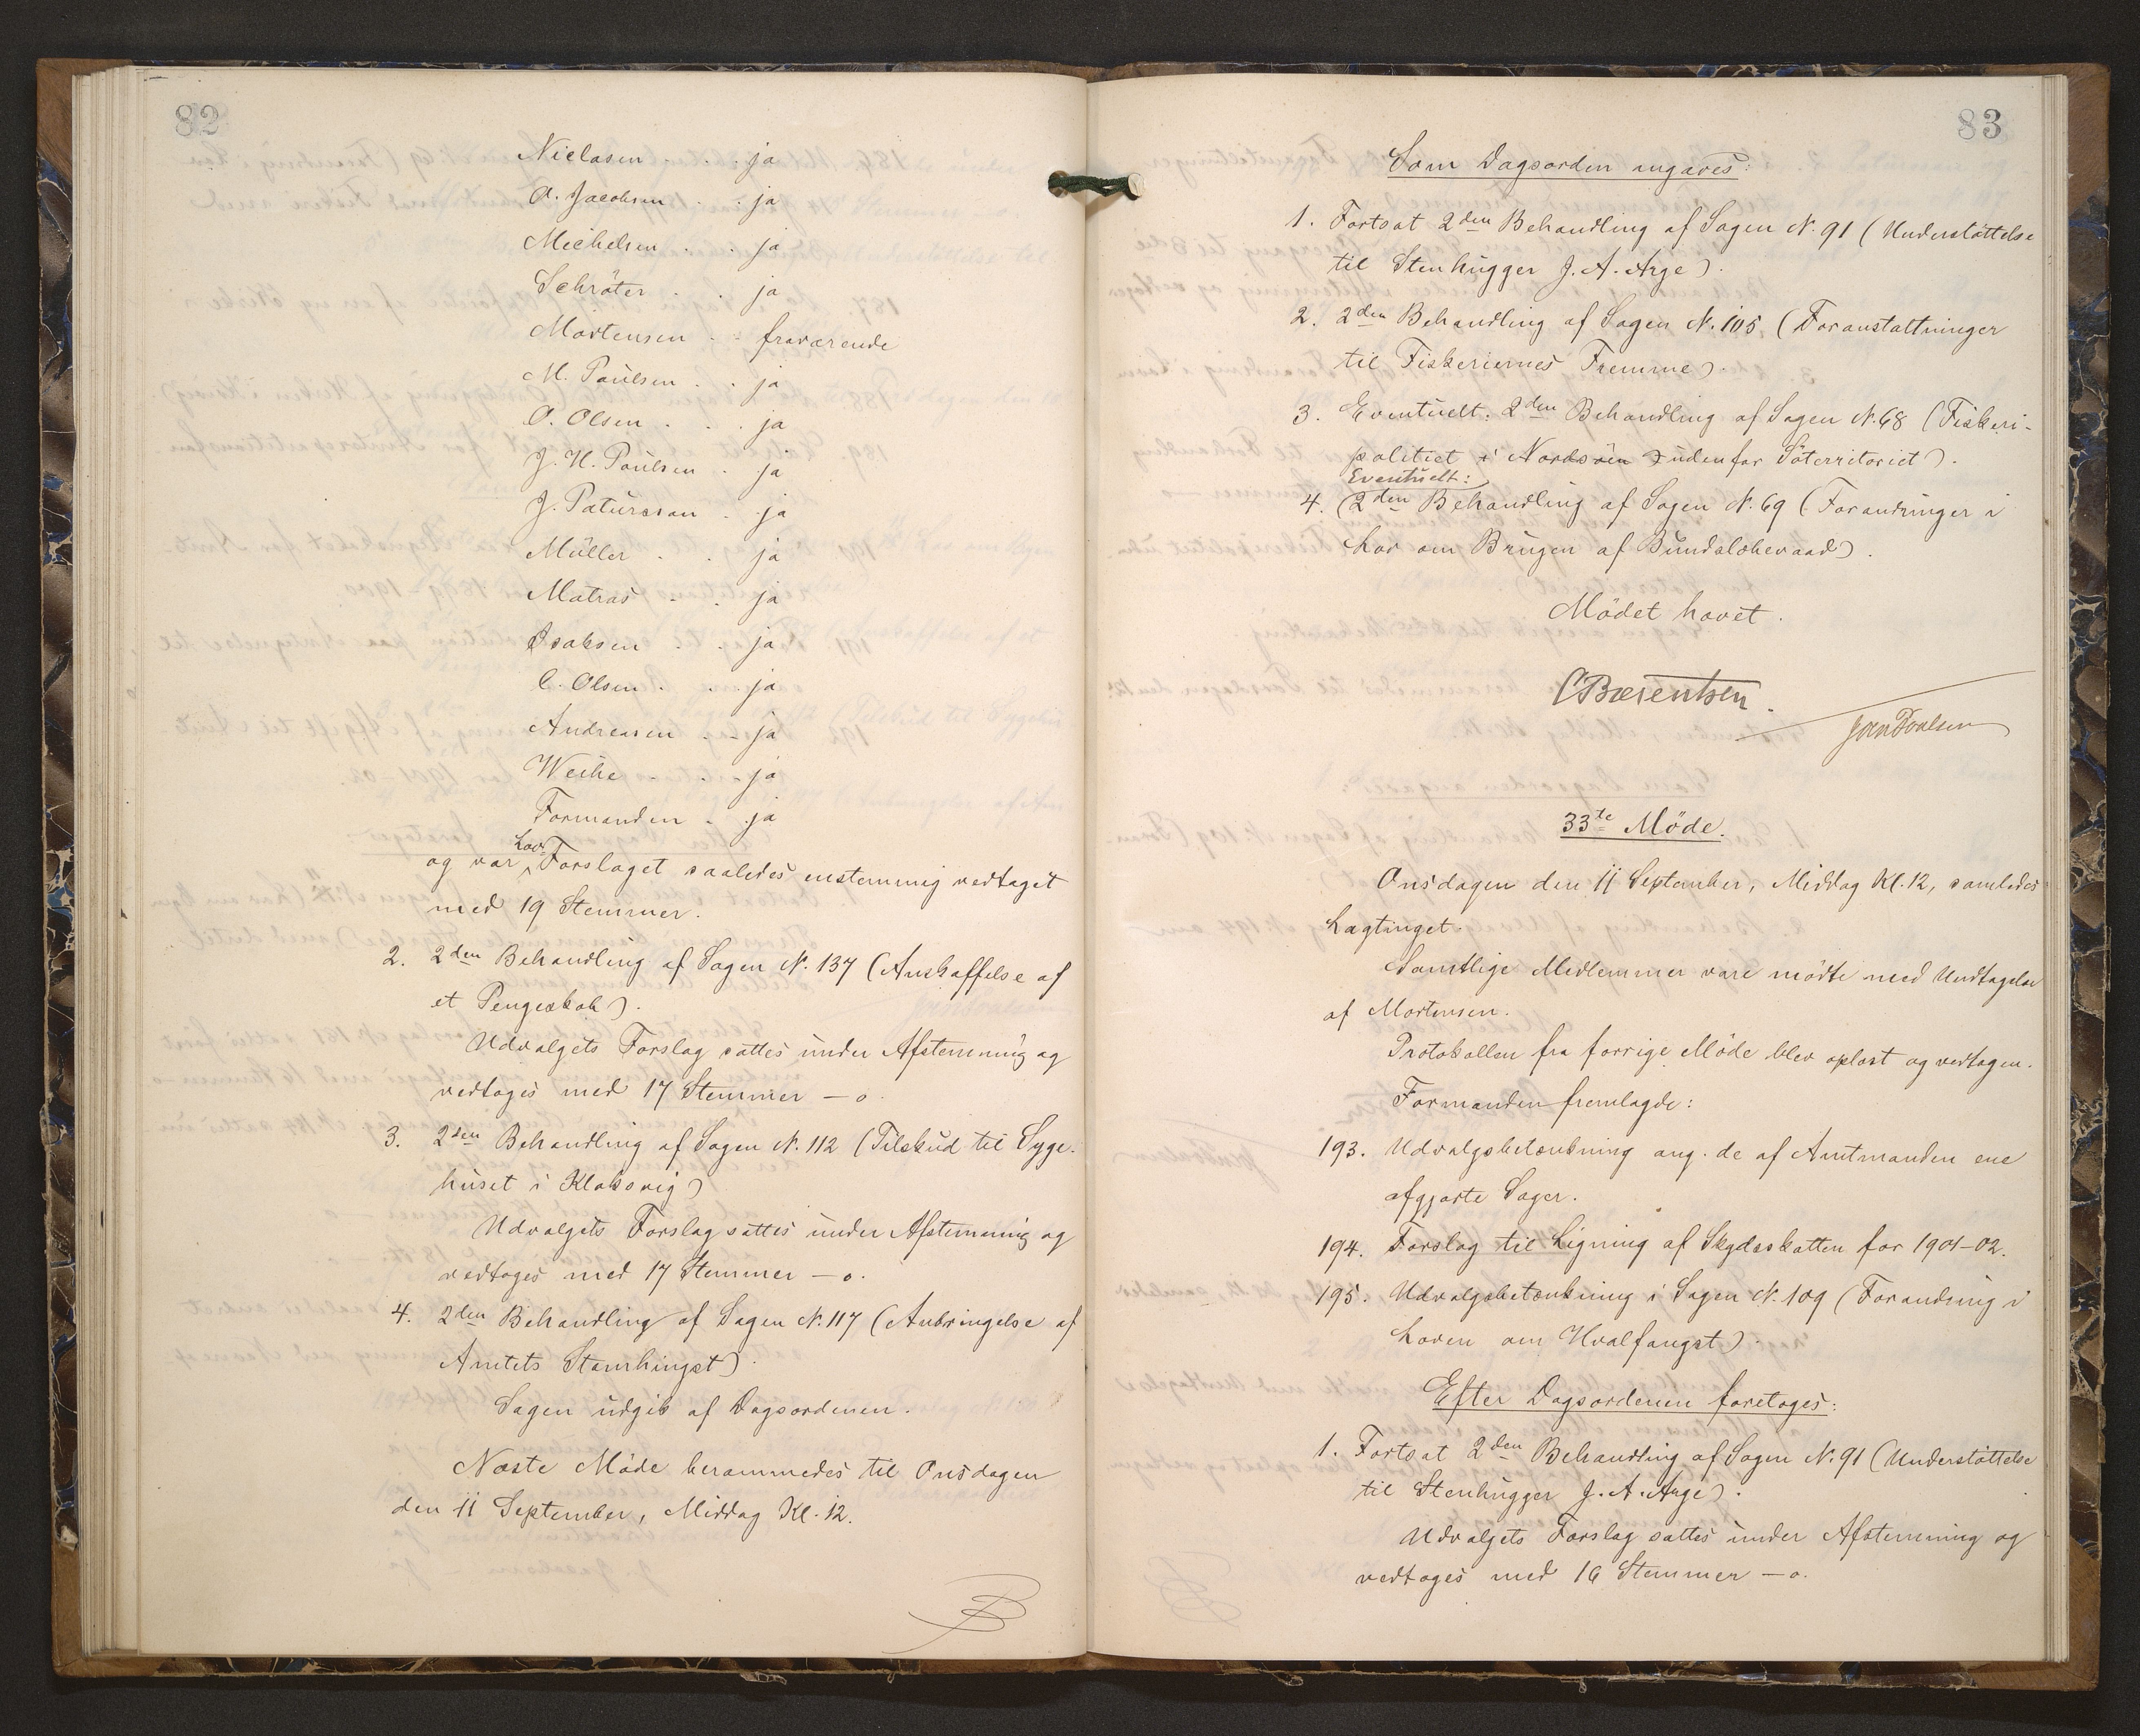 82
Niclasen . . . ja
O. Jacobsen . . ja
Michelsen . . ja
Schröter . . ja
Mortensen . . fraværende
M. Poulsen . . ja
O. Olsen . . . ja
J. H. Poulsen . ja
J. Patursson . ja
Müller . . ja
Matras . . ja
Isaksen . . ja
C. Olsen . . . ja
Andreasen . . ja
Weihe . . . ja
Formanden . ja
Lov
og var Forslaget saaledes enstemmig vedtaget
med 19 Stemmer.
2. 2den Behandling af Sagen N. 137 (Anskaffelse af
et Pengeskab).
Udvalgets Forslag sattes under Afstemning og
vedtoges med 17 Stemmer – o.
3. 2den Behandling af Sagen N. 112 (Tilskud til Syge-
huset i Klaksvig)
Udvalgets Forslag sattes under Afstemning og
vedtoges med 17 Stemmer – o.
4. 2den Behandling af Sagen N. 117 (Anbringelse af
Amtets Stamhingst).
Sagen udgik af Dagsordenen.
Næste Möde berammedes til Onsdagen
den 11 September, Middag Kl. 12.
83
Som Dagsorden angaves:
1. Fortsat 2den Behandling af Sagen N. 91 (Understöttelse
til Stenhugger J. A. Arge).
2. 2den Behandling af Sagen N. 105 (Foranstaltninger
til Fiskeriernes Fremme).
3. Eventuelt: 2den Behandling af Sagen N. 68 (Fiskeri-
politiet i Nordsöen udenfor Söterritoriet).
Eventuelt:
4. (2den Behandling af Sagen N. 69 (Forandringer i
Lov om Brugen af Bundslæbevaad).
Mödet hævet.
CBærentsen.
JoenPoulsen
33te Möde.
Onsdagen den 11 September, Middag Kl. 12, samledes
Lagtinget.
Samtlige Medlemmer vare mödte med Undtagelse
af Mortensen.
Protokollen fra forrige Möde blev oplæst og vedtagen.
Formanden fremlagde:
193. Udvalgsbetænkning ang. de af Amtmanden ene
afgjorte Sager.
194. Forslag til Ligning af Skydsskatten for 1901–02.
195. Udvalgsbetænkning i Sagen N. 109 (Forandring i
Loven om Hvalfangst).
Efter Dagsordenen foretoges:
1. Fortsat 2den Behandling af Sagen N. 91 (Understöttelse
til Stenhugger J. A. Arge).
Udvalgets Forslag sattes under Afstemning og
vedtoges med 16 Stemmer – o.